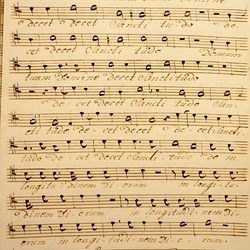 o decet o decet Sancti tu do de
cet decet Sancti tudo Domum
tuam Domine decet Sancti tudo
de cet decet Sancti tudo San
cti tudo de cet decet o decet Sancti
tudo decet decet Sancti tudo de in
longitu dinem di erum in longi tu
dinem di erum in longitu dinem di
erum in longi tu di nem di erum